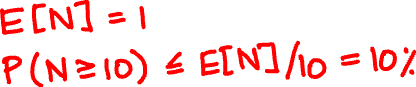 E[N] = 1
P(N ≥ 10) ≤ E[N]/10 = 10%